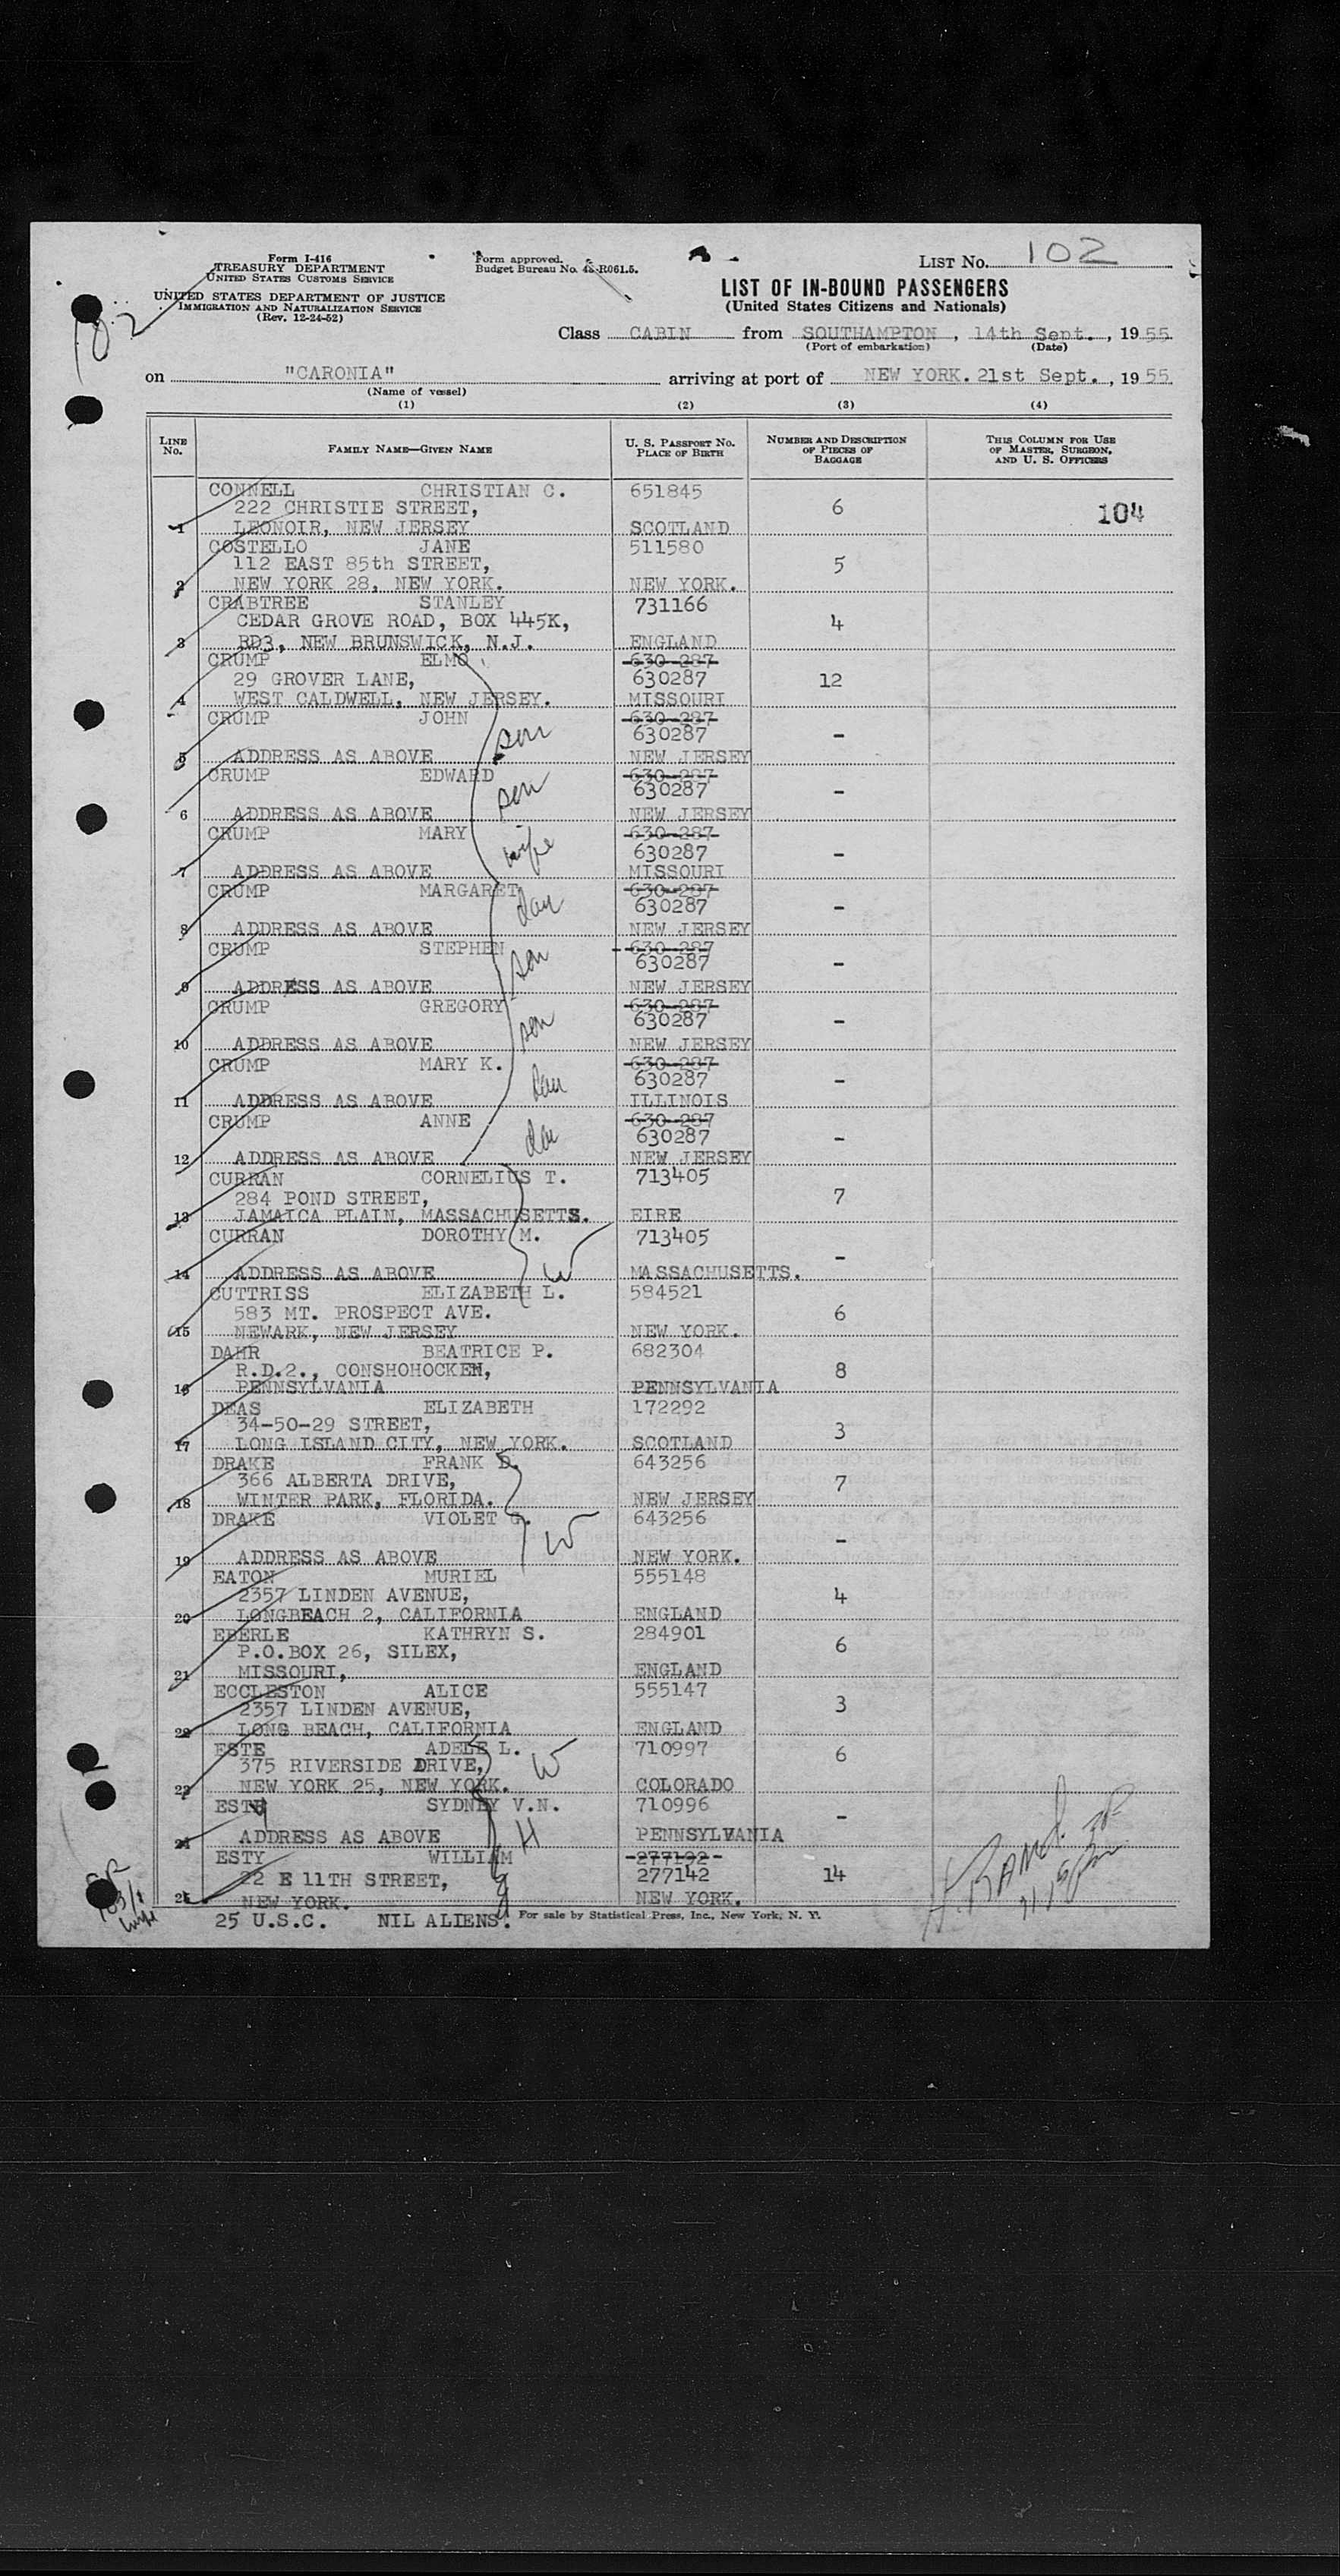 Form I-416
TREASURY DEPARTMENT
UNITED STATES CUSTOMS SERVICE
UNITED STATES DEPARTMENT OF JUSTICE
IMMIGRATION AND NATURALIZATION SERVICE
(Rev. 12-24-52)
Form approved.
Budget Bureau No. 43-R061.5.
LIST No. 102
LIST OF IN-BOUND PASSENGERS
(United States Citizens and Nationals)
Class CABIN from SOUTHAMPTON, 14th Sept., 1955
(Port of embarkation) (Date)
on "CARONIA" arriving at port of NEW YORK. 21st Sept., 1955
(Name of vessel)
(1) (2) (3) (4)
LINE No. FAMILY NAME—GIVEN NAME U. S. PASSPORT No. PLACE OF BIRTH NUMBER AND DESCRIPTION OF PIECES OF BAGGAGE THIS COLUMN FOR USE OF MASTER, SURGEON, AND U. S. OFFICERS
CONNELL CHRISTIAN C. 651845
222 CHRISTIE STREET, 6 104
1 LEONOIR, NEW JERSEY SCOTLAND
COSTELLO JANE 511580
112 EAST 85th STREET, 5
2 NEW YORK 28, NEW YORK. NEW YORK.
CRABTREE STANLEY 731166
CEDAR GROVE ROAD, BOX 445K, 4
3 RD3, NEW BRUNSWICK, N.J. ENGLAND
CRUMP ELMO 630-287
29 GROVER LANE, 630287 12
4 WEST CALDWELL, NEW JERSEY. MISSOURI
CRUMP JOHN 630-287
son 630287 -
5 ADDRESS AS ABOVE NEW JERSEY
CRUMP EDWARD 630-287
son 630287 -
6 ADDRESS AS ABOVE NEW JERSEY
CRUMP MARY 630-287
wife 630287 -
7 ADDRESS AS ABOVE MISSOURI
CRUMP MARGARET 630-287
dau 630287 -
8 ADDRESS AS ABOVE NEW JERSEY
CRUMP STEPHEN 630-287
son 630287 -
9 ADDRESS AS ABOVE NEW JERSEY
CRUMP GREGORY 630-287
son 630287 -
10 ADDRESS AS ABOVE NEW JERSEY
CRUMP MARY K. 630-287
dau 630287 -
11 ADDRESS AS ABOVE ILLINOIS
CRUMP ANNE 630-287
dau 630287 -
12 ADDRESS AS ABOVE NEW JERSEY
CURRAN CORNELIUS T. 713405
284 POND STREET, 7
13 JAMAICA PLAIN, MASSACHUSETTS. EIRE
CURRAN DOROTHY M. 713405
W -
14 ADDRESS AS ABOVE MASSACHUSETTS.
CUTTRISS ELIZABETH L. 584521
583 MT. PROSPECT AVE. 6
15 NEWARK, NEW JERSEY NEW YORK.
DAHR BEATRICE P. 682304
R.D.2., CONSHOHOCKEN, 8
16 PENNSYLVANIA PENNSYLVANIA
DEAS ELIZABETH 172292
34-50-29 STREET, 3
17 LONG ISLAND CITY, NEW YORK. SCOTLAND
DRAKE FRANK D. 643256
366 ALBERTA DRIVE, 7
18 WINTER PARK, FLORIDA. NEW JERSEY
DRAKE VIOLET G. 643256
W -
19 ADDRESS AS ABOVE NEW YORK.
EATON MURIEL 555148
2357 LINDEN AVENUE, 4
20 LONGBEACH 2, CALIFORNIA ENGLAND
EBERLE KATHRYN S. 284901
P.O.BOX 26, SILEX, 6
21 MISSOURI, ENGLAND
ECCLESTON ALICE 555147
2357 LINDEN AVENUE, 3
22 LONG BEACH, CALIFORNIA ENGLAND
ESTE ADELE L. W 710997
375 RIVERSIDE DRIVE, 6
23 NEW YORK 25, NEW YORK. COLORADO
ESTE SYDNEY V.N. 710996
H -
24 ADDRESS AS ABOVE PENNSYLVANIA
ESTY WILLIAM 277192
22 E 11TH STREET, 277142 14
25 NEW YORK. NEW YORK.
25 U.S.C. NIL ALIENS.
For sale by Statistical Press, Inc., New York, N. Y.